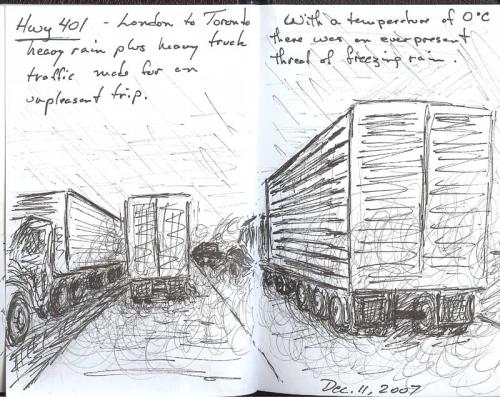 Hwy 401 - London to Toronto
heavy rain plus heavy truck
traffic made for an
unpleasant trip.
With a temperature of 0°C
there was an everpresent
threat of freezing rain.
Dec. 11, 2007